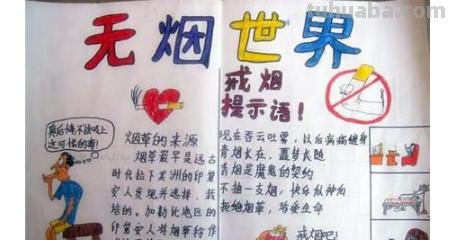 tuhuaba.com
无烟世界
戒烟
提示语！
真后悔不该吸上
这可恨的毒！
烟草的来源
烟草最早是远古
时代拉丁美洲的印第
安人发现并选择，栽
培的。加勒比地区的
印第安人将烟草给作
现在吞云吐雾，以后病痛缠身
青烟长在，噩梦长随
青烟是魔鬼的契约
不抽一支烟，快乐似神仙
拒绝烟草，珍爱生命
戒烟吧！